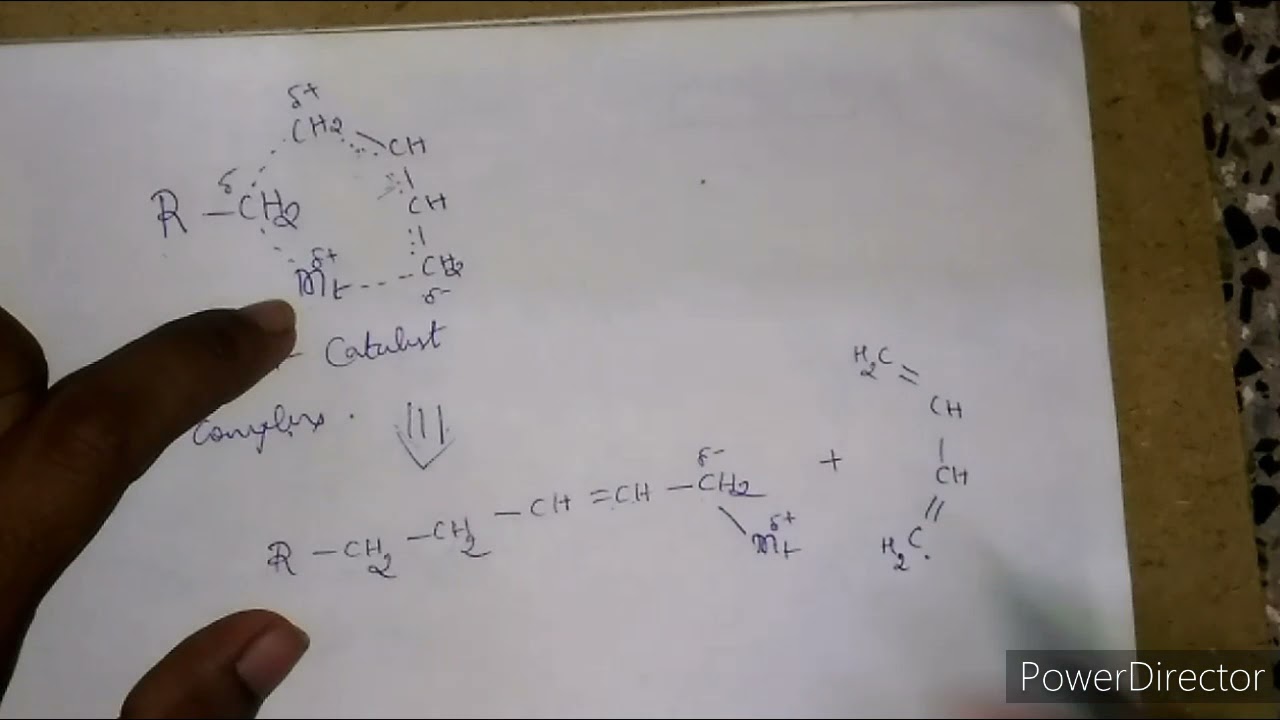 δ+
CH2 CH
δ
R – CH2 CH
δ+
Mt CH2
δ-
Catalist
Complex.
H2C
=
CH
|
δ-
R – CH2 – CH2 – CH = CH – CH2 + CH
δ+
Mt
=
H2C.
PowerDirector